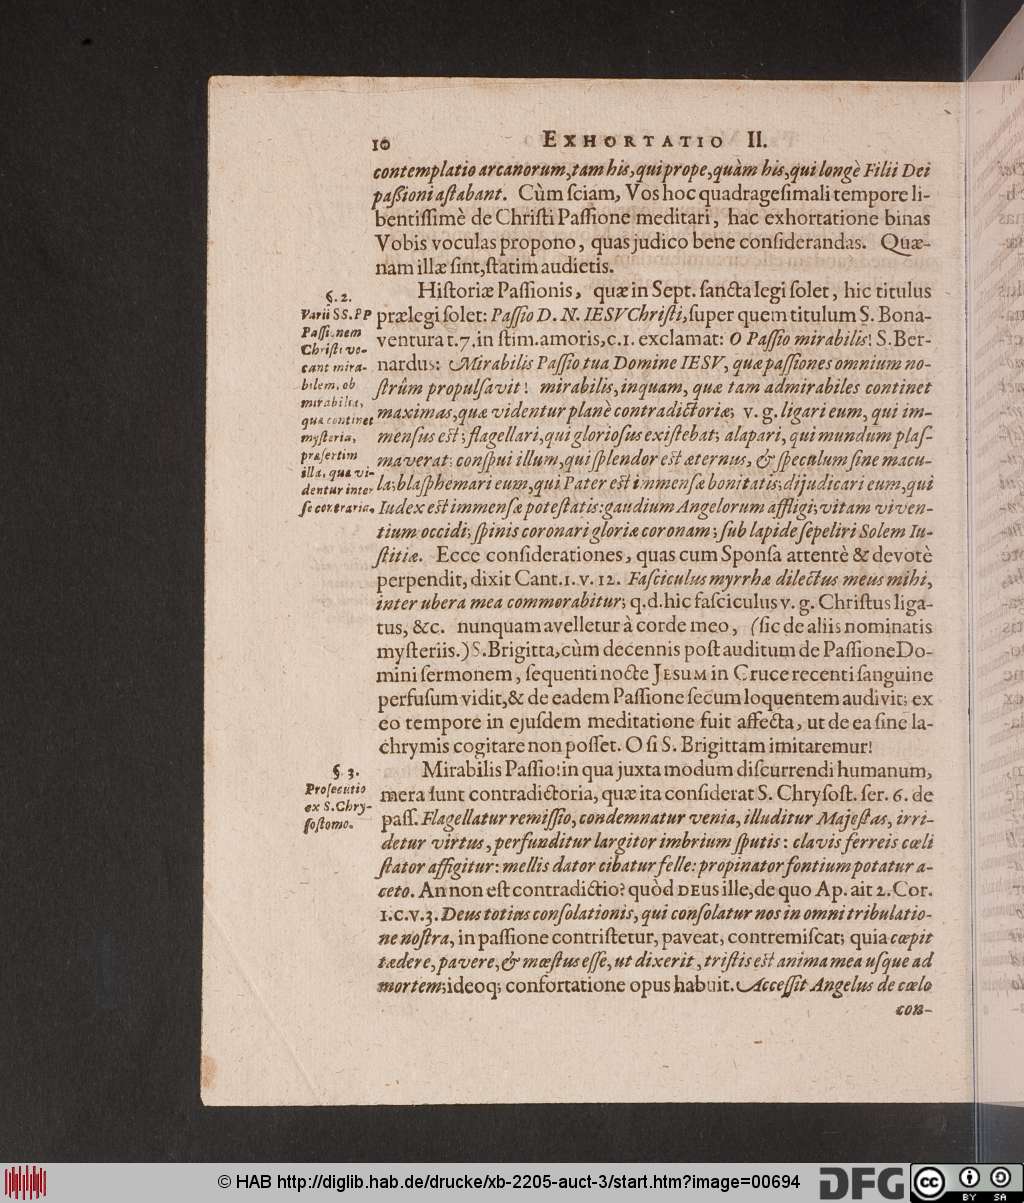 10 EXHORTATIO II.
contemplatio arcanorum, tam his, qui prope, quàm his, qui longè Filii Dei
paſsioni aſtabant. Cùm ſciam, Vos hoc quadrageſimali tempore li-
bentiſſimè de Chriſti Paſſione meditari, hac exhortatione binas
Vobis voculas propono, quas judico bene conſiderandas. Quæ-
nam illæ ſint, ſtatim audietis.
§. 2.
Varii SS. PP
Paſſionem
Chriſti vo-
cant mira-
bilem, ob
mirabilia,
quæ continet
myſteria,
præſertim
illa, quæ vi-
dentur inter
ſe contraria.
Hiſtoriæ Paſſionis, quæ in Sept. ſancta legi ſolet, hic titulus
prælegi ſolet: Paſſio D. N. IESV Chriſti, ſuper quem titulum S. Bona-
ventura t. 7. in ſtim. amoris, c. 1. exclamat: O Paſſio mirabilis! S. Ber-
nardus: Mirabilis Paſſio tua Domine IESV, quæ paſſiones omnium no-
ſtrûm propulſavit! mirabilis, inquam, quæ tam admirabiles continet
maximas, quæ videntur planè contradictoriæ; v. g. ligari eum, qui im-
menſus eſt; flagellari, qui glorioſus exiſtebat; alapari, qui mundum plaſ-
maverat; conſpui illum, qui ſplendor eſt æternus, & ſpeculum ſine macu-
la; blaſphemari eum, qui Pater eſt immenſæ bonitatis; dijudicari eum, qui
Iudex eſt immenſæ poteſtatis: gaudium Angelorum affligi; vitam viven-
tium occidi; ſpinis coronari gloriæ coronam; ſub lapide ſepeliri Solem Iu-
ſtitiæ. Ecce conſiderationes, quas cum Sponſa attentè & devotè
perpendit, dixit Cant. 1. v. 12. Faſciculus myrrhæ dilectus meus mihi,
inter ubera mea commorabitur; q. d. hic faſciculus v. g. Chriſtus liga-
tus, &c. nunquam avelletur à corde meo, (ſic de aliis nominatis
myſteriis.) S. Brigitta, cùm decennis poſt auditum de Paſſione Do-
mini ſermonem, ſequenti nocte JESUM in Cruce recenti ſanguine
perfuſum vidit, & de eadem Paſſione ſecum loquentem audivit; ex
eo tempore in ejuſdem meditatione fuit affecta, ut de ea ſine la-
chrymis cogitare non poſſet. O ſi S. Brigittam imitaremur!
§. 3.
Proſecutio
ex S. Chry-
ſoſtomo.
Mirabilis Paſſio! in qua juxta modum diſcurrendi humanum,
mera ſunt contradictoria, quæ ita conſiderat S. Chryſoſt. ſer. 6. de
paſſ. Flagellatur remiſſio, condemnatur venia, illuditur Majeſtas, irri-
detur virtus, perfunditur largitor imbrium ſputis: clavis ferreis cœli
ſtator affigitur: mellis dator cibatur felle: propinator fontium potatur a-
ceto. An non eſt contradictio? quòd DEus ille, de quo Ap. ait 2. Cor.
1. c. v. 3. Deus totius conſolationis, qui conſolatur nos in omni tribulatio-
ne noſtra, in paſſione contriſtetur, paveat, contremiſcat; quia cœpit
tædere, pavere, & mœſtus eſſe, ut dixerit, triſtis eſt anima mea uſque ad
mortem; ideoq; confortatione opus habuit. Acceſſit Angelus de cœlo
con-
© HAB http://diglib.hab.de/drucke/xb-2205-auct-3/start.htm?image=00694
DFG
cc BY SA